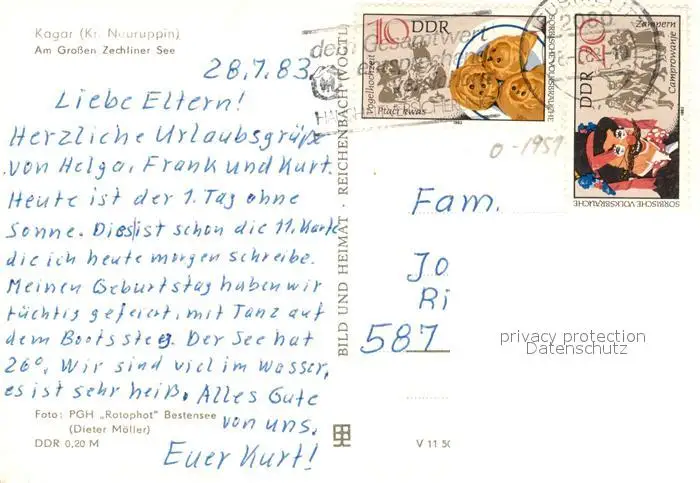 Kagar (Kr. Neuruppin)
Am Großen Zechliner See
28.7.83
Liebe Eltern!
Herzliche Urlaubsgrüße
von Helga, Frank und Kurt.
Heute ist der 1. Tag ohne
Sonne. Dies ist schon die 11. Karte
die ich heute morgen schreibe.
Meinen Geburtstag haben wir
tüchtig gefeiert, mit Tanz auf
dem Bootssteg. Der See hat
26°. Wir sind viel im Wasser,
es ist sehr heiß. Alles Gute
von uns.
Euer Kurt!
Foto: PGH „Rotophot" Bestensee
(Dieter Möller)
DDR 0,20 M
BILD UND HEIMAT · REICHENBACH (VOGTL
V 11 50
10 DDR
Vogelhochzeit
Ptači kwas
SORBISCHE VOLKSBRÄUCHE
1982
20 DDR
Zampern
Camprowanje
SORBISCHE VOLKSBRÄUCHE
1982
dem Gesamtwert
entsprechend
0-1951
Fam.
JO
Ri
587
privacy protection
Datenschutz